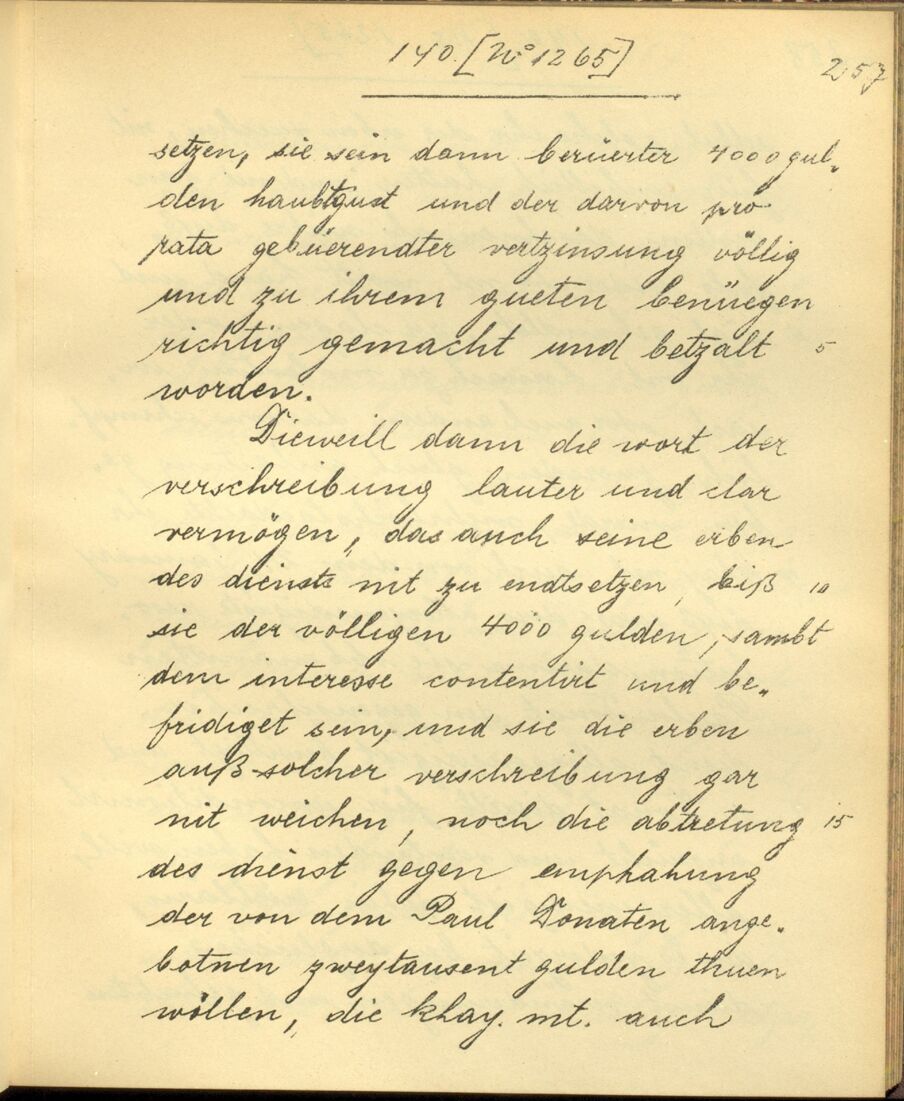 140. [No 1265]
257
setzen, sie sein dann berüerter 4000 gul„
den haubtguet und der darvon pro
rata gebüerendter vertzinsung völlig
und zu ihrem gueten benüegen
richtig gemacht und betzalt 5
worden.
Dieweill dann die wort der
verschreibung lauter und clar
vermögen, das auch seine erben
des diensts nit zu endtsetzen, biß 10
sie der völligen 4000 gulden, sambt
dem interesse contentirt und be„
fridiget sein, und sie die erben
auß solcher verschreibung gar
nit weichen, noch die abtretung 15
des dienst gegen emphahung
der von dem Paul Donaten ange„
botnen zweytausent gulden thuen
wöllen, die khay. mt. auch